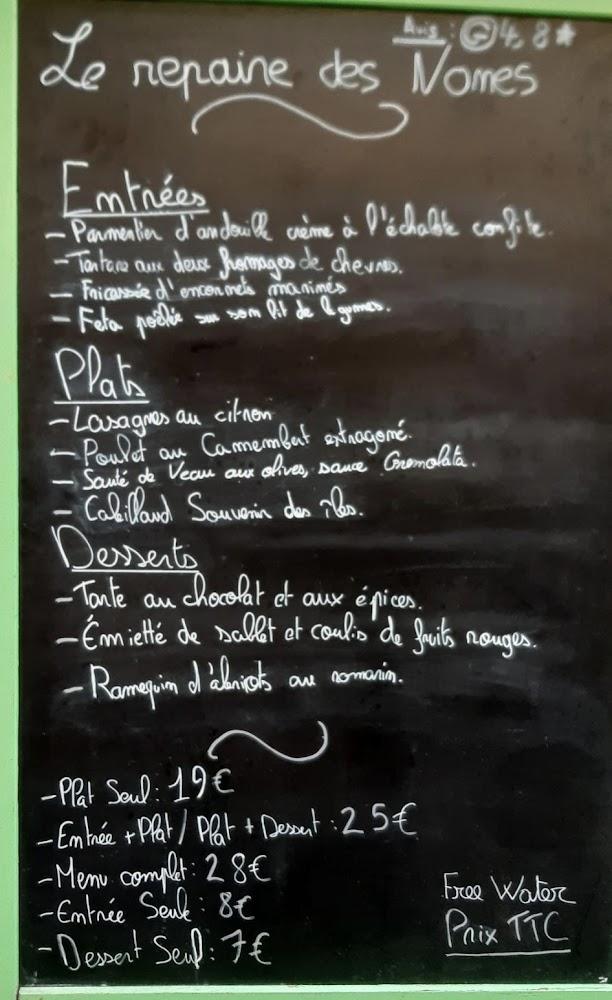 Avis : G 4,8★
Le repaire des Nomes
Entrées
- Parmentier d'andouille crème à l'échalote confite.
- Tartare aux deux fromages de chevres.
- Fricassée d'encornets marinés
- Feta poêlée sur son lit de légumes.
Plats
- Lasagnes au citron
- Poulet au Camembert estragoné.
- Sauté de Veau aux olives, sauce Gremolata.
- Cabillaud Souvenir des îles.
Desserts
- Tarte au chocolat et aux épices.
- Émietté de sablet et coulis de fruits rouges.
- Ramequin d'abricots au romarin.
- Plat Seul : 19€
- Entrée + Plat / Plat + Dessert : 25€
- Menu complet : 28€
- Entrée Seule : 8€
- Dessert Seul : 7€
Free Water
Prix TTC